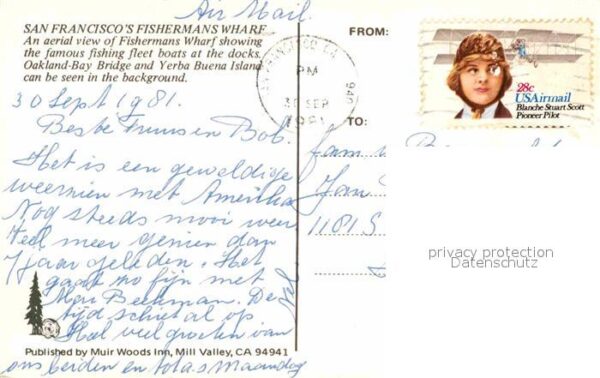 Air Mail.
SAN FRANCISCO'S FISHERMANS WHARF
An aerial view of Fishermans Wharf showing
the famous fishing fleet boats at the docks.
Oakland-Bay Bridge and Yerba Buena Island
can be seen in the background.
30 Sept 1981.
Beste Truus en Bob.
Het is een geweldige
weerzien met Amerika
Nog steeds mooi weer
Veel meer genien dan
7 jaar geleden. Het
gaat zo fijn met
Beekman. De
tijd schiet al op
Heel veel groeten van
ons beiden en tot a.s maandag
Published by Muir Woods Inn, Mill Valley, CA 94941
FROM:
TO:
PM
30 SEP
1981
28c
USAirmail
Blanche Stuart Scott
Pioneer Pilot
fam
Jan
1181 S
privacy protection
Datenschutz